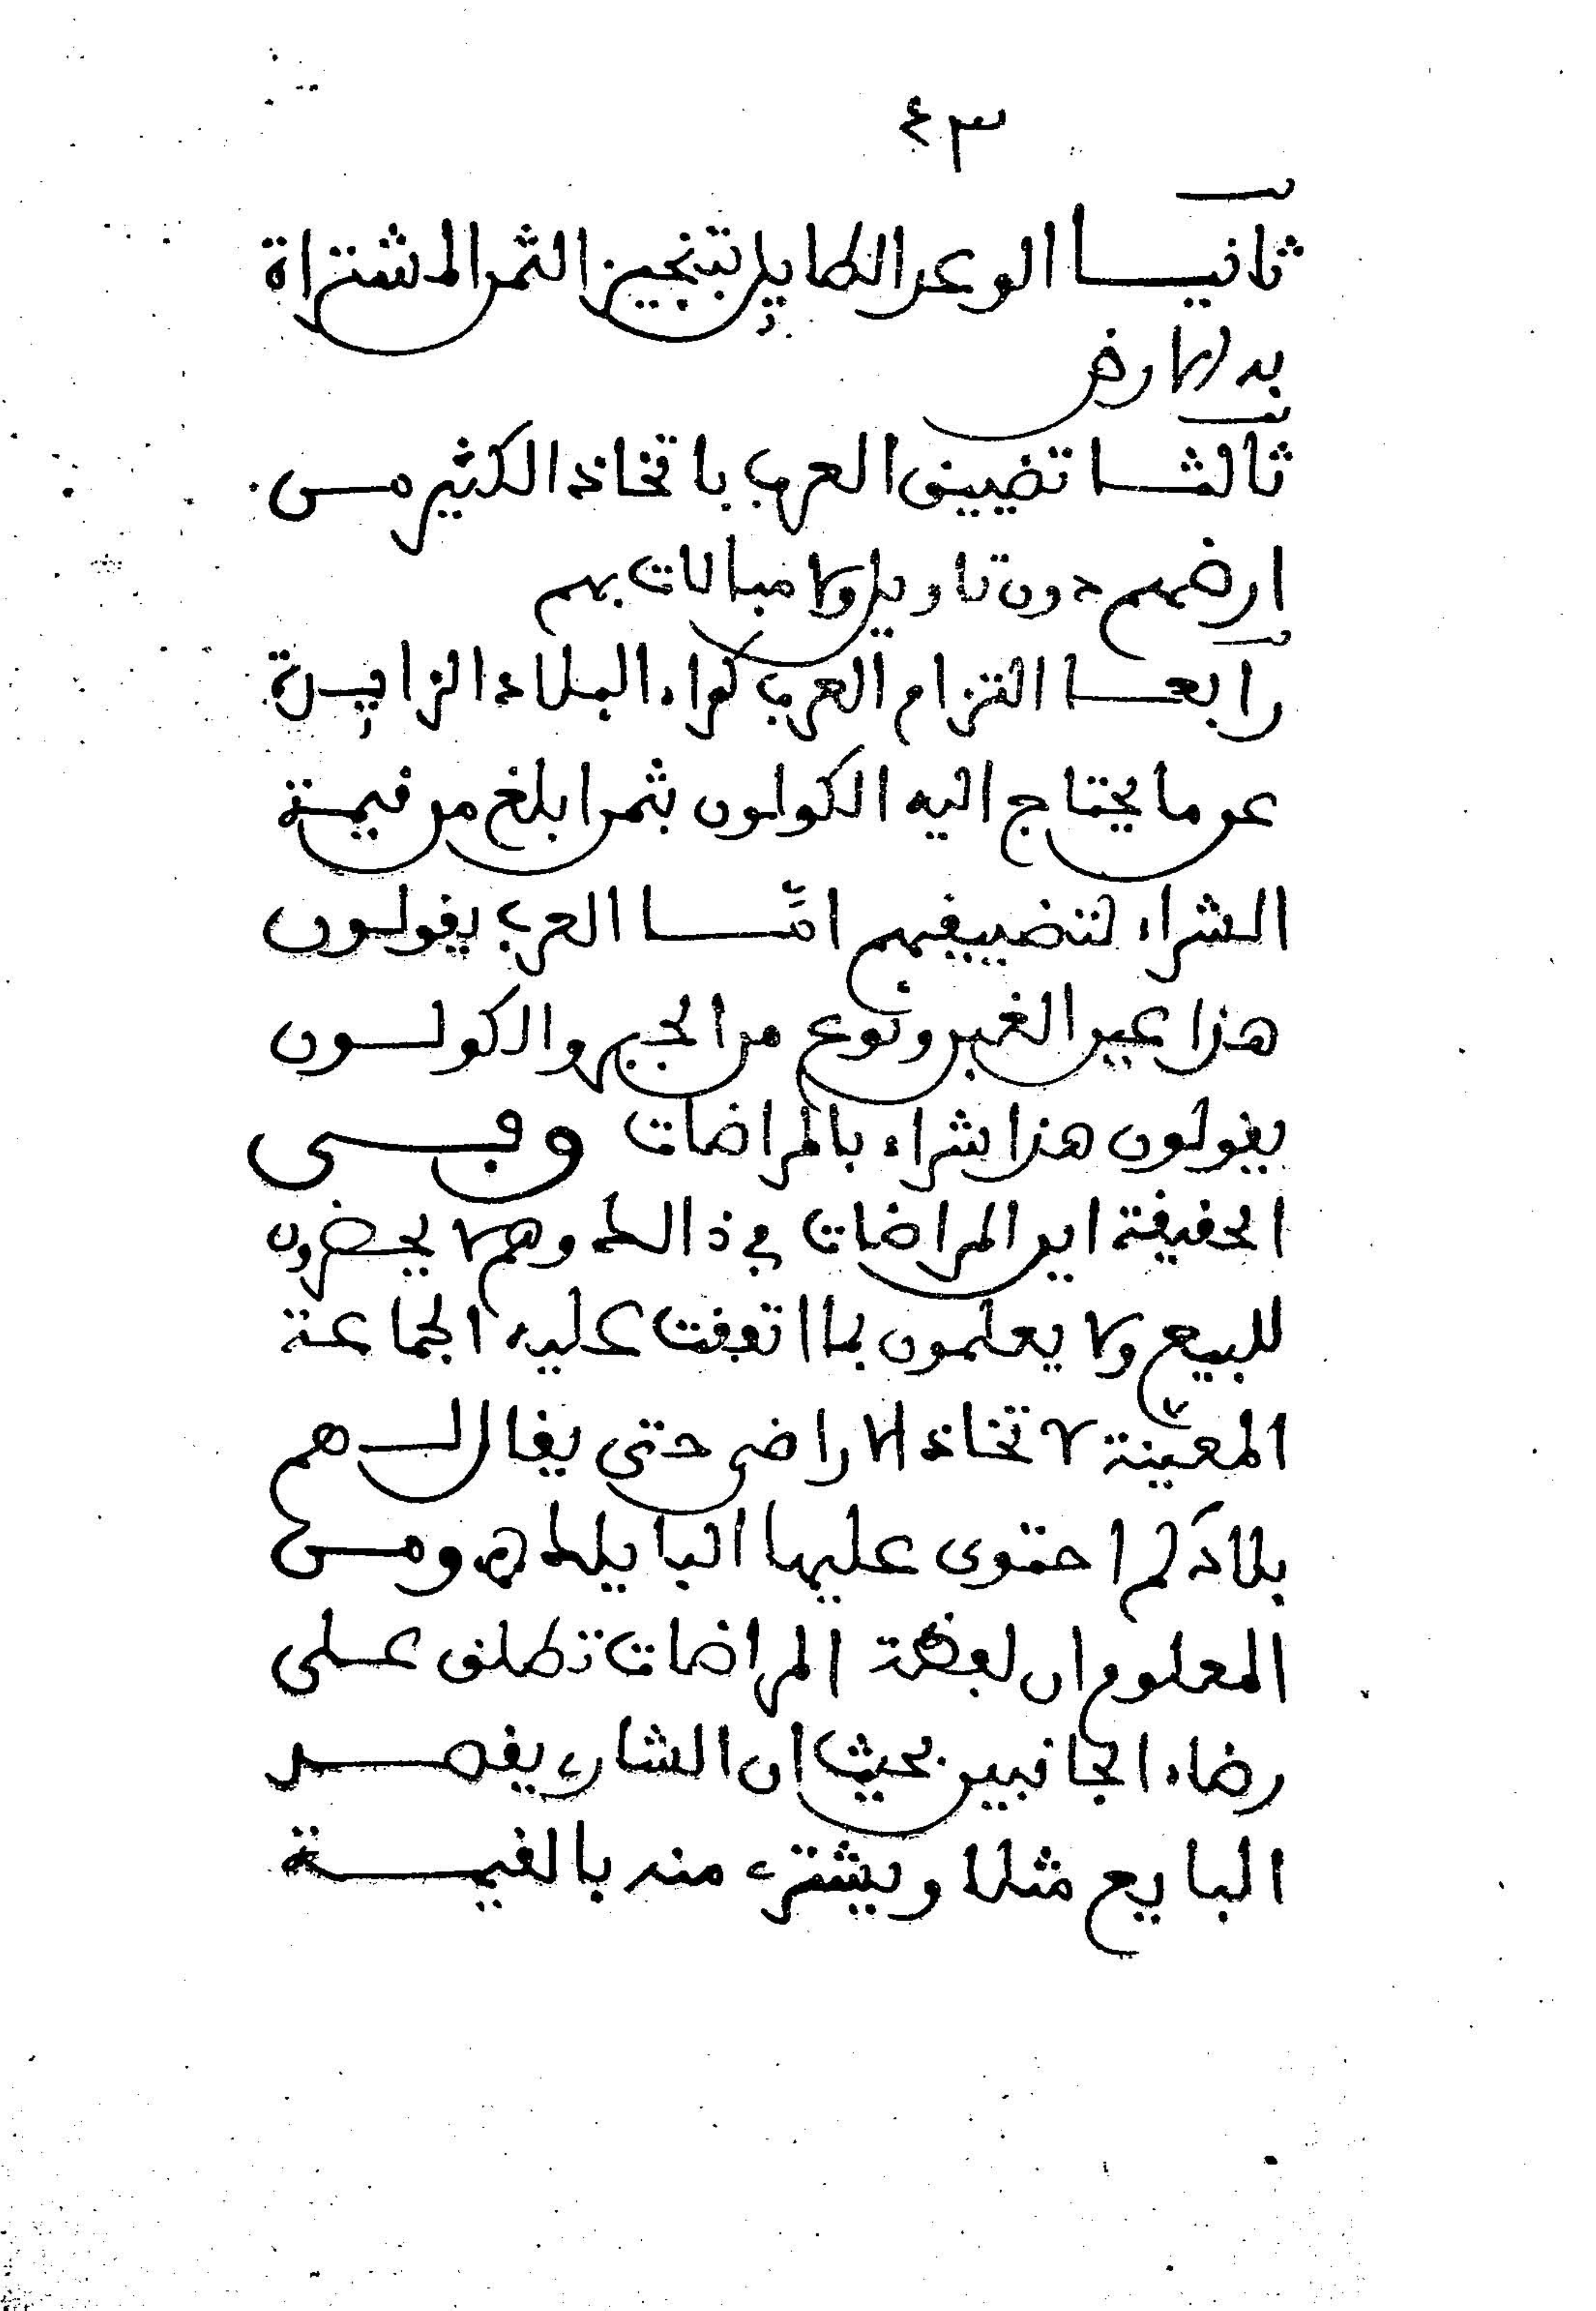 ٤٣
ثانيا الوعد الطايل بتنجيز الثمن المشتراة
به الارض
ثالثا تضييق العرب باتخاذ الكثير من
ارضهم دون تاويل ولا مبالات بهم
رابعا التزام العرب كراء البلاد الزايدة
عن ما يحتاج اليه الكولون بثمن ابلغ من قيمة
الشراء لتضييقهم امّا العرب يقولون
هذا عين الغبن ونوع من الجبر والكولون
يقولون هذا شراء بالمراضات وفي
الحقيقة اين المراضات في ذالك وهم لا يحضرون
للبيع ولا يعلمون بما اتفقت عليه الجماعة
المعينة لاتخاذ الاراضي حتى يقال لهم
بلادكم احتوى عليها البايلك ومن
المعلوم ان لفظة المراضات تطلق على
رضاء الجانبين بحيث ان الشاري يقصد
البايع مثلا ويشتري منه بالقيمة